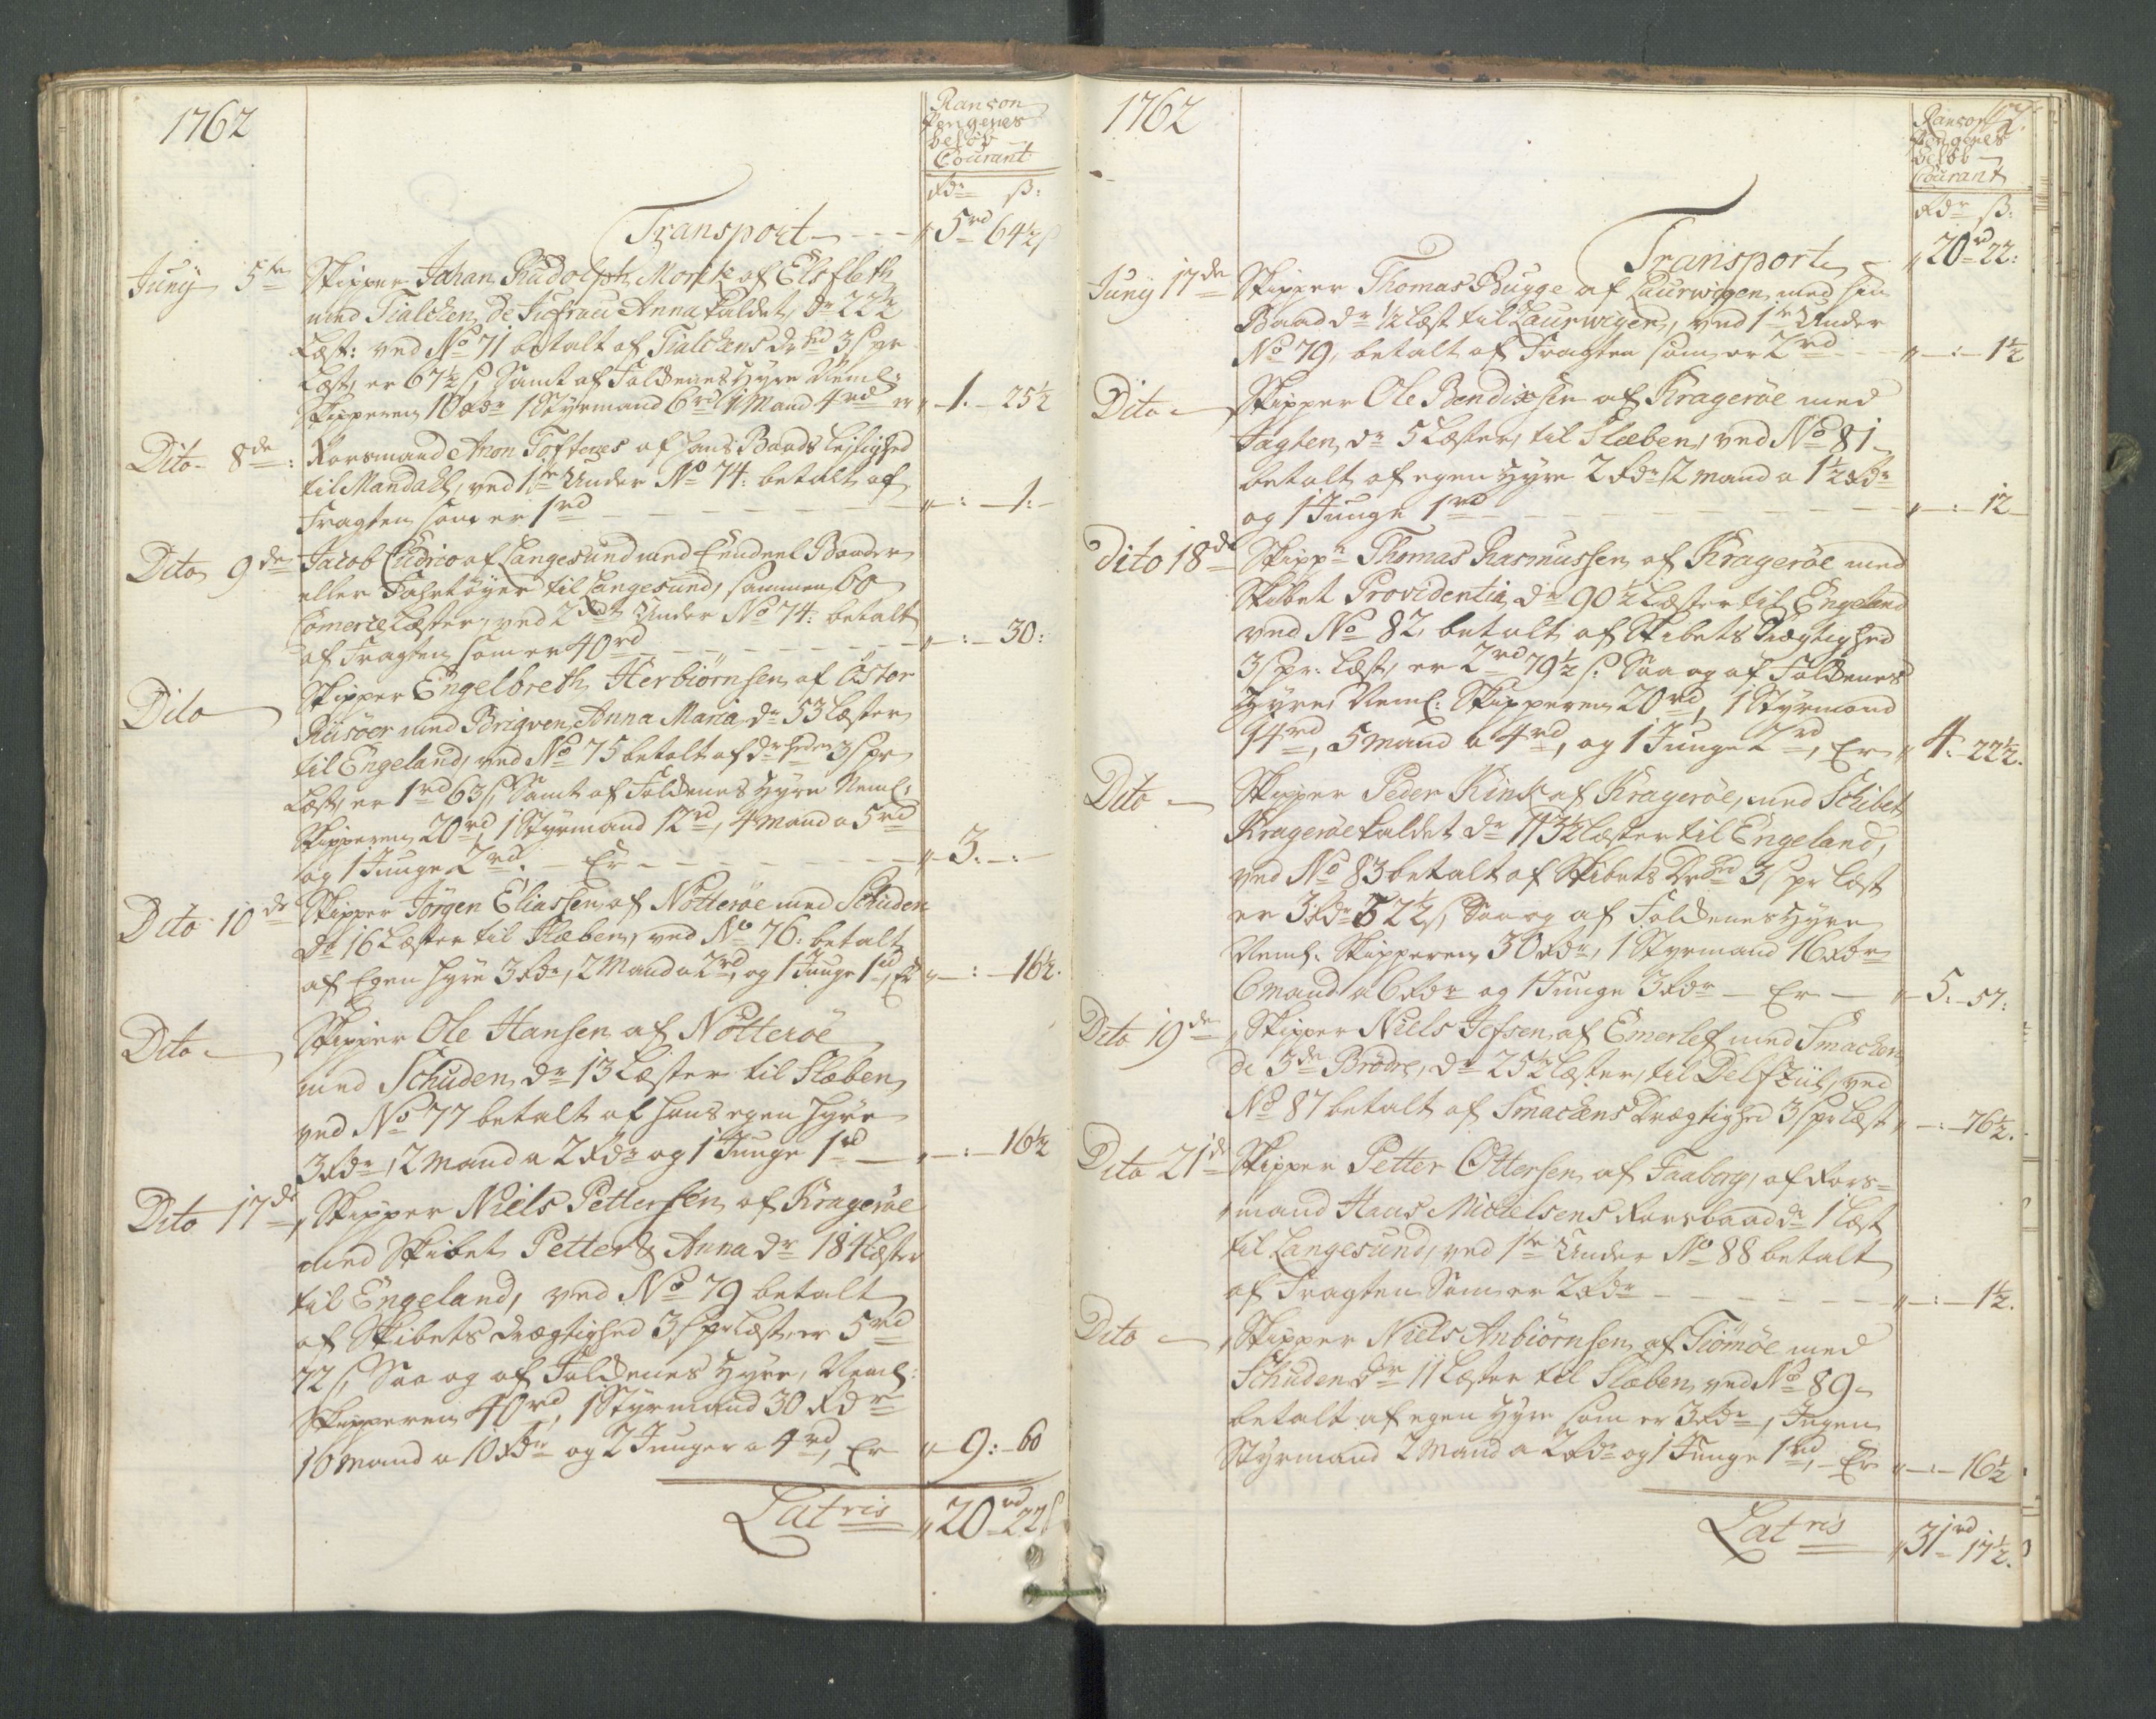 1762
Ranson
Pengenes
beløb
Courant
Rdr ß:
Transport - - - " 5rd 64½ß
Juny 5te Skipper Johan Rudolph Morik af Elsfleth
med Tialchen De Jufrau Anna kaldet, dr 22½
Læst: ved No 71 betalt af Tialchens drhed 3ß pr
Læst, er 67½ß, Samt af Folckenes Hyre Neml:
Skipperen 10 Rdr 1 Styrmand 6rd 1 Mand 4rd er " 1. 25½
Dito 8de: Rorsmand Anon Toftenes af hans Baads Leylighed
til Mandahl, ved 1te Under No 74: betalt af
Fragten som er 1rd - - - " : 1:
Dito 9de Jacob Cudrio af Langesund med Eendeel Baader
eller Fahrtøyer til Langesund, sammen 60
Comerce Læster, ved 2det Under No 74: betalt
af Fragten som er 40rd - - - " : 30:
Dito Skipper Engelbreth Herbiørnsen af Öster
Riisöer med Briqven Anna Maria dr 53 Læster
til Engeland, ved No 75 betalt af drheden 3ß pr
Læst, er 1rd 63ß, Samt af Folckenes Hyre Neml:
Skipperen 20rd, 1 Styrmand 12rd, 4 Mand a 5rd
og 1 Junge 2rd. - Er - - - " 3. - : -
Dito 10de Skipper Jörgen Eliassen af Nötteröe med Schuden
dr 16 Læster til Slæben, ved No 76: betalt
af Egen Hyre 3 Rdr, 2 Mand a 2rd, og 1 Junge 1rd, Er " : 16½.
Dito Skipper Ole Hansen af Nötteröe
med Schuden dr 13 Læster til Slæben
ved No 77 betalt af hans egen Hyre
3 Rdr, 2 Mand a 2 Rdr og 1 Junge 1rd - " : 16½
Dito 17de, Skipper Niels Pettersen af Krageröe
med Skibet Petter & Anna dr 184 Læster
til Engeland, ved No 79 betalt
af Skibets drægtighed 3ß pr Læst, er 5rd
72ß, Saa og af Folckenes Hyre, Neml:
Skipperen 40rd, 1 Styrmand 30 Rdr
16 Mand a 10 Rdr og 2 Junger a 4rd, Er " 9: 60
Latris " 20rd 22ß
1762
Ranson
Pengenes
beløb
Courant
Rdr ß:
Transport - " 20rd 22:
Juny 17de Skipper Thomas Bugge af Laurwigen med sin
Baad dr ½ Læst til Laurwigen, ved 1te Under
No 79, betalt af Fragten som er 2rd - - " : 1½
Dito Skipper Ole Bendixsen af Krageröe med
Jagten dr 5 Læster, til Slæben, ved No 81
betalt af egen Hyre 2 Rdr, 2 Mand a 1½ Rdr
og 1 Junge 1rd - - - " : 12
Dito 18de Skippr Thomas Rasmussen af Krageröe med
Skibet Providentia dr 90½ Læster til Engeland
ved No 82, betalt af Skibets Drægtighed
3ß pr: Læst, er 2rd 79½ß. Saa og af Folckenes
Hyre, Neml: Skipperen 20rd, 1 Styrmand
14rd, 5 Mand a 4rd, og 1 Junge 2rd, Er " 4. 22½.
Dito Skipper Peder Kink af Krageröe, med Schibet
Krageröe kaldet dr 113½ Læster til Engeland,
ved No 83 betalt af Skibets Drhed 3ß pr Læst
er 3 Rdr 52½ß, Saa og af Folckenes Hyre
Neml: Skipperen 30 Rdr, 1 Styrmand 16 Rdr
6 Mand a 6 Rdr og 1 Junge 3 Rdr - Er - " 5. 57:
Dito 19de, Skipper Niels Jefsen af Emerlef med Smacken
de 3de Brödre, dr 25½ Læster, til Delfziil, ved
No 87 betalt af Smackens Drægtighed 3ß pr Læst " : 76½.
Dito 21de Skipper Petter Ottersen af Faaborg, af Rors=
mand Hans Michelsens Rorsbaad dr 1 Læst
til Langesund, ved 1te Under No 88 betalt
af Fragten Som er 2 Rdr - - - " : 1½.
Dito, Skipper Niels Anbiörnsen af Tiömöe med
Schuden dr 11 Læster til Slæben, ved No 89
betalt af egen Hyre som er 3 Rdr, Ingen
Styrmand 2 Mand a 2 Rdr og 1 Junge 1rd, - Er " : 16½
Latris " 31rd 17½.